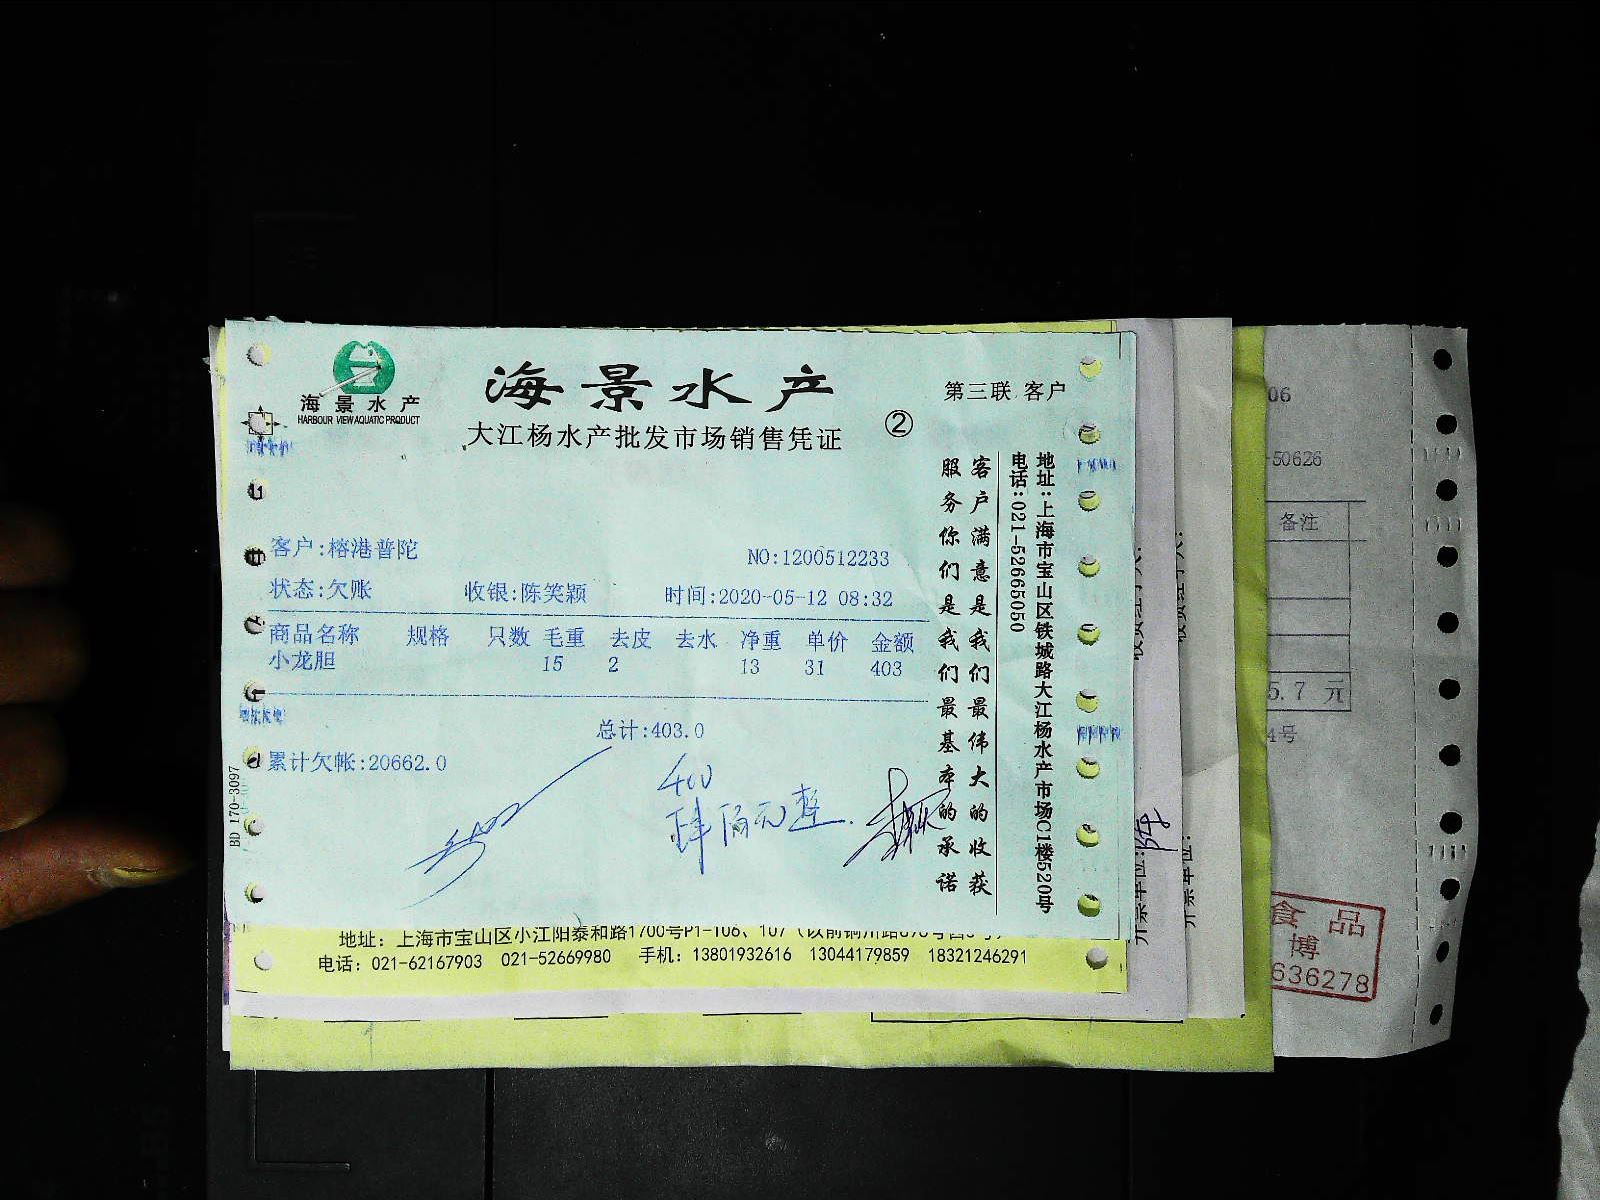 海景水产
HARBOUR VIEW AQUATIC PRODUCT
海景水产
大江杨水产批发市场销售凭证
②
第三联 客户
客户:榕港普陀
NO:1200512233
状态:欠账 收银:陈笑颖 时间:2020-05-12 08:32
商品名称 规格 只数 毛重 去皮 去水 净重 单价 金额
小龙胆 15 2 13 31 403
总计:403.0
累计欠帐:20662.0
400
肆佰元整.
客户满意是我们最伟大的收获
服务你们是我们最基本的承诺
地址:上海市宝山区铁城路大江杨水产市场C1楼520号
电话:021-52665050
BD 170-3097
地址: 上海市宝山区小江阳泰和路1700号P1-106、107
电话: 021-62167903 021-52669980 手机: 13801932616 13044179859 18321246291
开票单位:
开票单位:
06
-50626
备注
5.7 元
4号
食品
博
636278